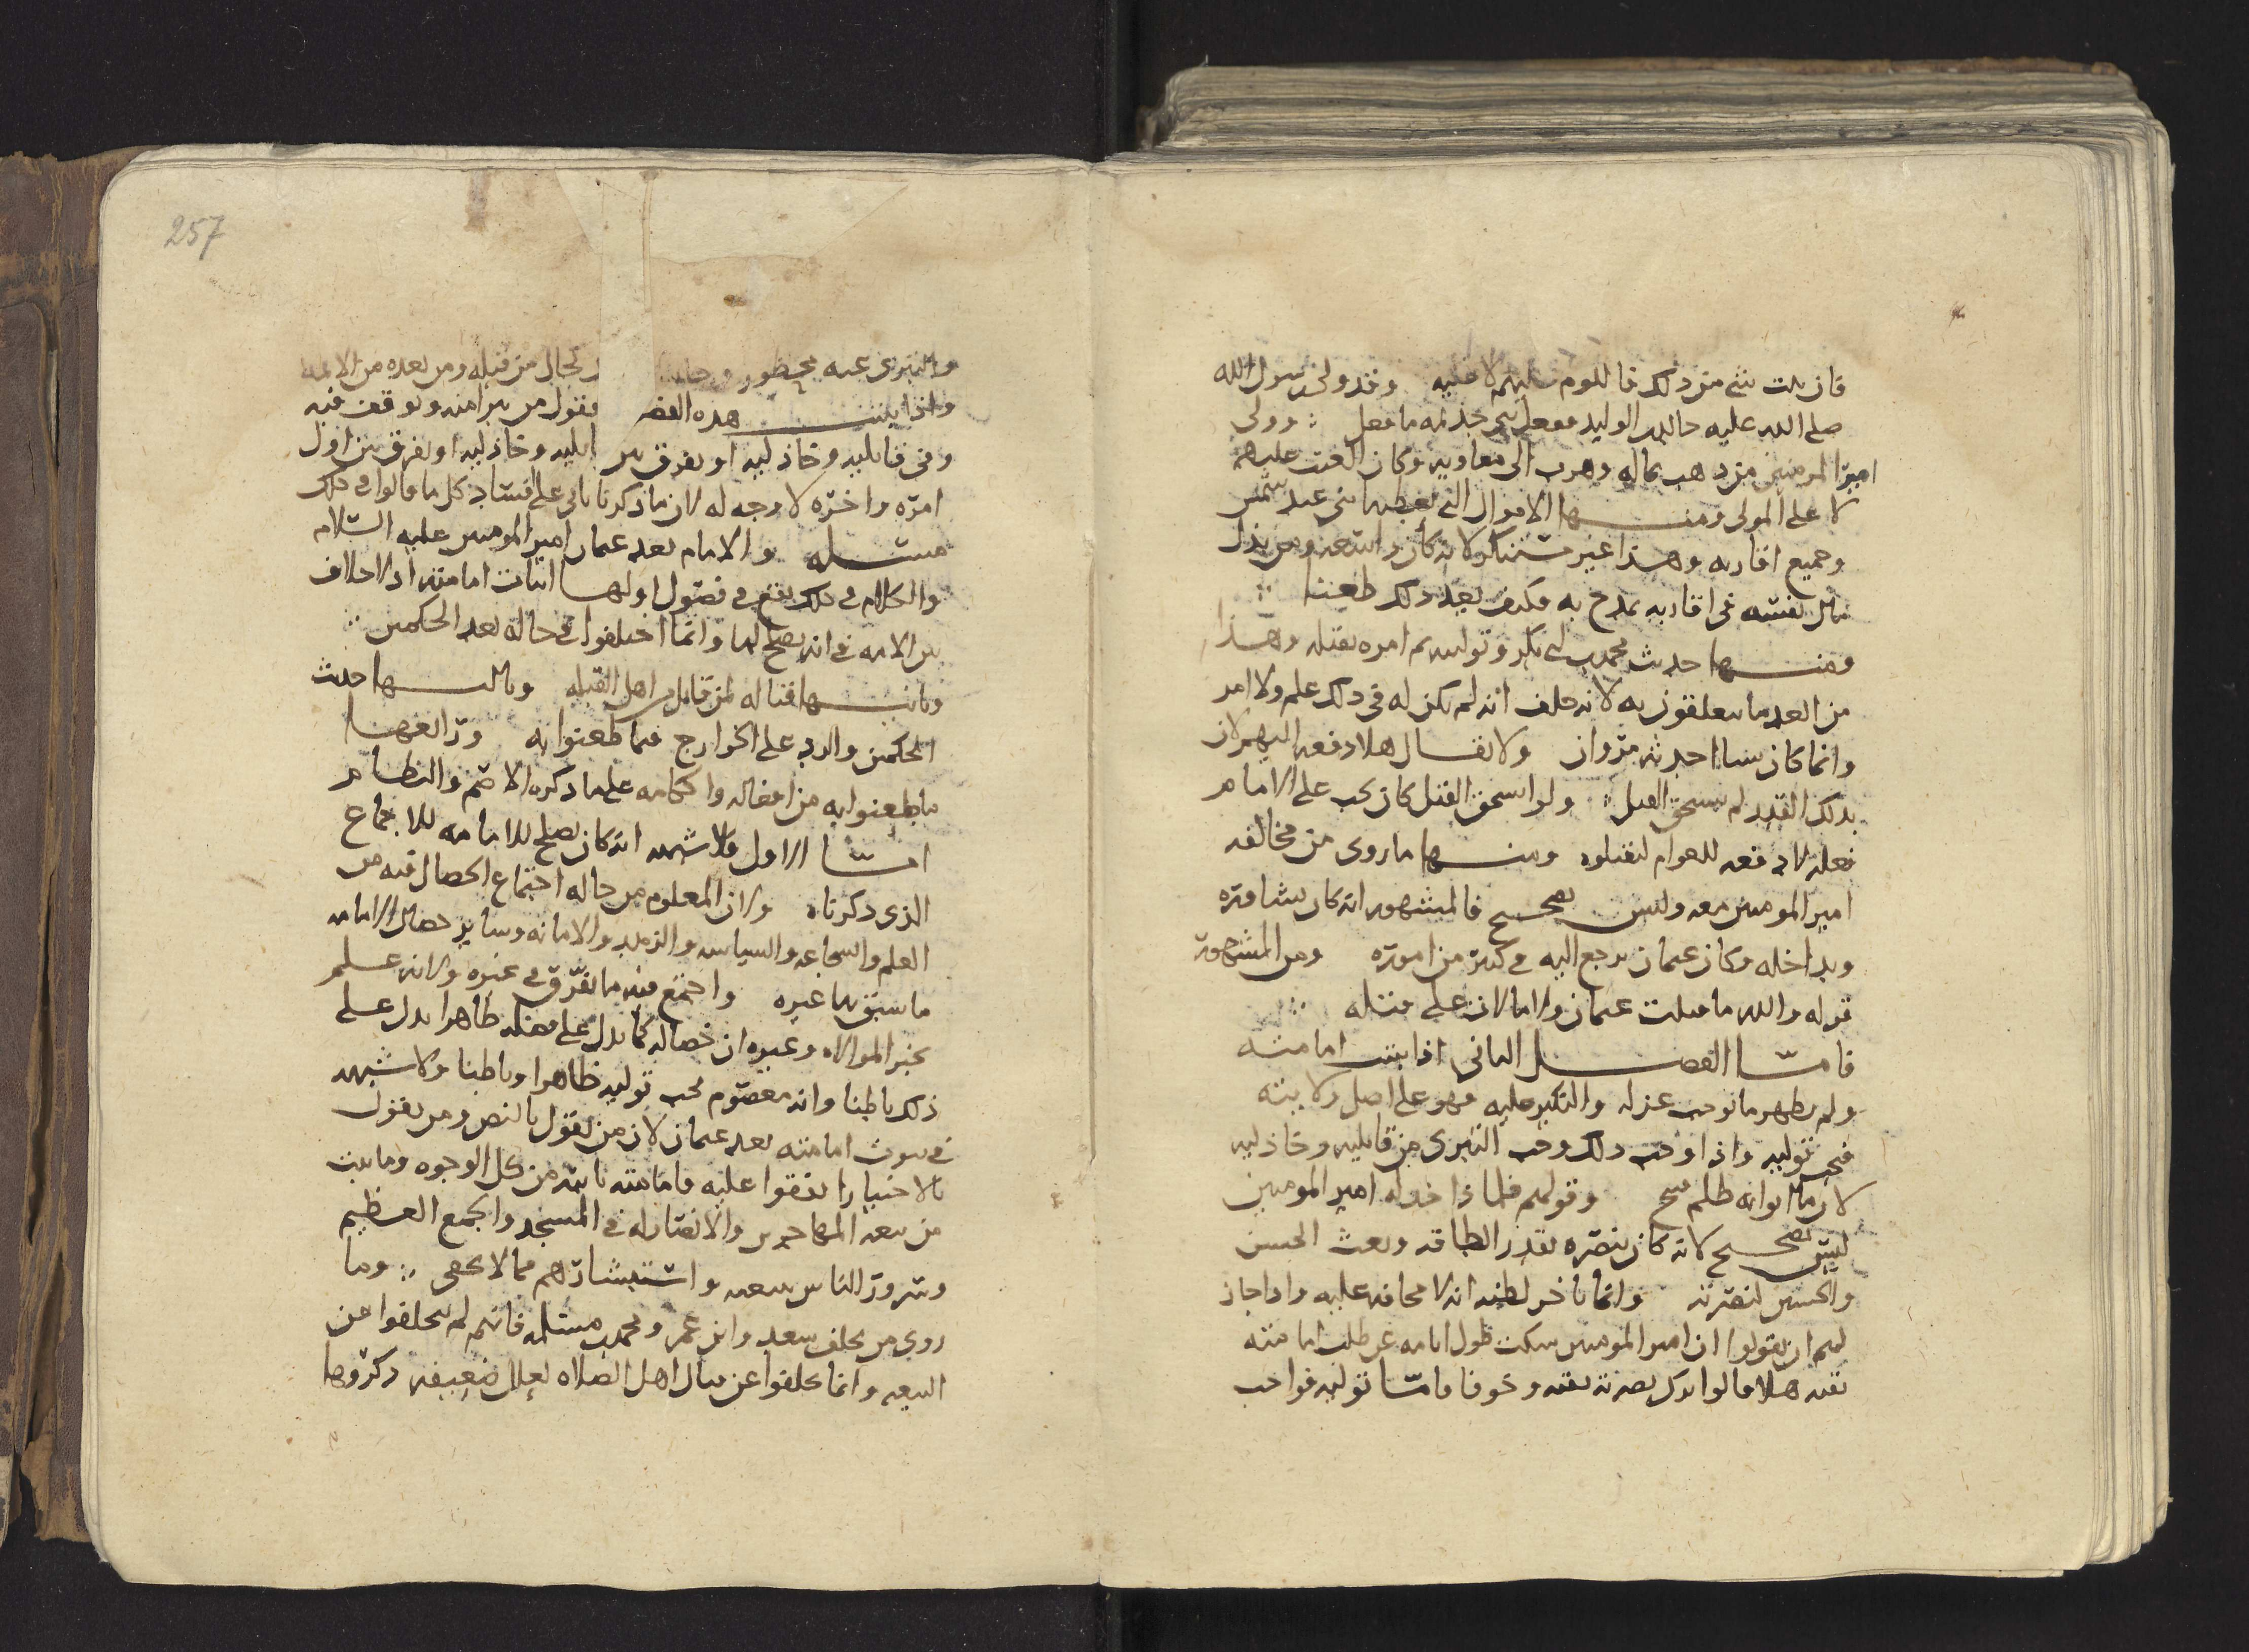 فان ثبت شي من ذلك فاللوم عليهم لا عليه وقد ولى رسول الله
صلى الله عليه خالد بن الوليد ففعل ببني جذيمه ما فعل : وولى
امير المومنين من ذهب بماله وهرب الى معاويه وكان العتب عليهم
لا على المولى ومنها الاموال التي يعطيها بني عبد شمس
وجميع اقاربه وهذا غير مستنكر لانه كان واسعه ومن بذل
مال نفسه في اقاربه يمدح به فكيف يعد ذلك طعنا
ومنها حديث محمد بن ابي بكر وتوليته ثم امره بقتله وهذا
من ابعد ما يتعلقون به لانه حلف انه لم يكن له في ذلك علم ولا امر
وانما كان شيا احدثه مروان ولا يقال هلا دفعه اليهم لان
بذلك القدر لم يستحق القتل ولو استحق القتل كان يجب على الامام
فعله لا دفعه للعوام ليقتلوه ومنها ما روى من مخالفه
امير المومنين معه وليس بصحيح فالمشهور انه كان يشاوره
ويداخله وكان عثمان يرجع اليه في كثير من اموره ومن المشهور
قوله والله ما قتلت عثمان ولا مالات على قتله
فاما الفصل الثاني اذا ثبت امامته
ولم يظهر ما يوجب عزله والنكير عليه فهو على اصل ولايته
فيجب توليه واذا وجب ذلك وجب التبري من قاتليه وخاذليه
لان ما اتوا به ظلم قبيح وقولهم فلماذا خذله امير المومنين
ليس بصحيح لانه كان ينصره بقدر الطاقه وبعث الحسن
والحسين لنصرته وانما تاخر لظنه انه لا مخافه عليه واذا جاز
لهم ان يقولوا ان امير المومنين سكت طول ايامه عن طلب امامته
تقيه هلا قالوا ترك نصرته تقيه وخوفا فاما توليه فواجب
257
والتبري عنه محظور بحال من قبله ومن بعده من الائمه
واذا ثبت هذه الفصول فقول من تبرا منه وتوقف فيه
وفي قاتليه وخاذليه او يفرق بين قاتليه وخاذليه او يفرق بين اول
امره واخره لا وجه له لان ما ذكرنا ياتي على افساد كل ما قالوا في ذلك
مسله والامام بعد عثمان امير المومنين عليه السلام
والكلام في ذلك يقع في فصول اولها اثبات امامته اذ لا خلاف
بين الامه في انه يصلح لها وانما اختلفوا في حاله بعد الحكمين :
وثانيها قتاله لمن قاتل من اهل القبله وثالثها حديث
الحكمين والرد على الخوارج فيما طعنوا به ورابعها
ما طعنوا به من افعاله واحكامه على ما ذكره الاصم والنظام
اما الاول فلا شبهه انه كان يصلح للامامه للاجماع
الذي ذكرناه ولان المعلوم من حاله اجتماع الخصال فيه من
العلم والشجاعه والسياسه والزهد والامانه وساير خصال الامامه
ما سبق بها غيره واجتمع فيه ما تفرق في غيره ولانه علم
بخبر الموالاه وغيره ان خصاله كما يدل على فضله ظاهرا يدل على
ذلك باطنا وانه معصوم يجب توليه ظاهرا وباطنا ولا شبهه
في ثبوت امامته بعد عثمان لان من يقول بالنص ومن يقول
بالاختيار اتفقوا عليه فامامته ثابته من كل الوجوه وما ثبت
من بيعه المهاجرين والانصار له في المسجد والجمع العظيم
وسرور الناس ببيعته واستبشارهم مما لا يخفى : وما
روى من تخلف سعد وابن عمر ومحمد بن مسلمه فانهم لم يتخلفوا عن
البيعه وانما تخلفوا عن قتال اهل الصلاه لعلل ضعيفه ذكروها